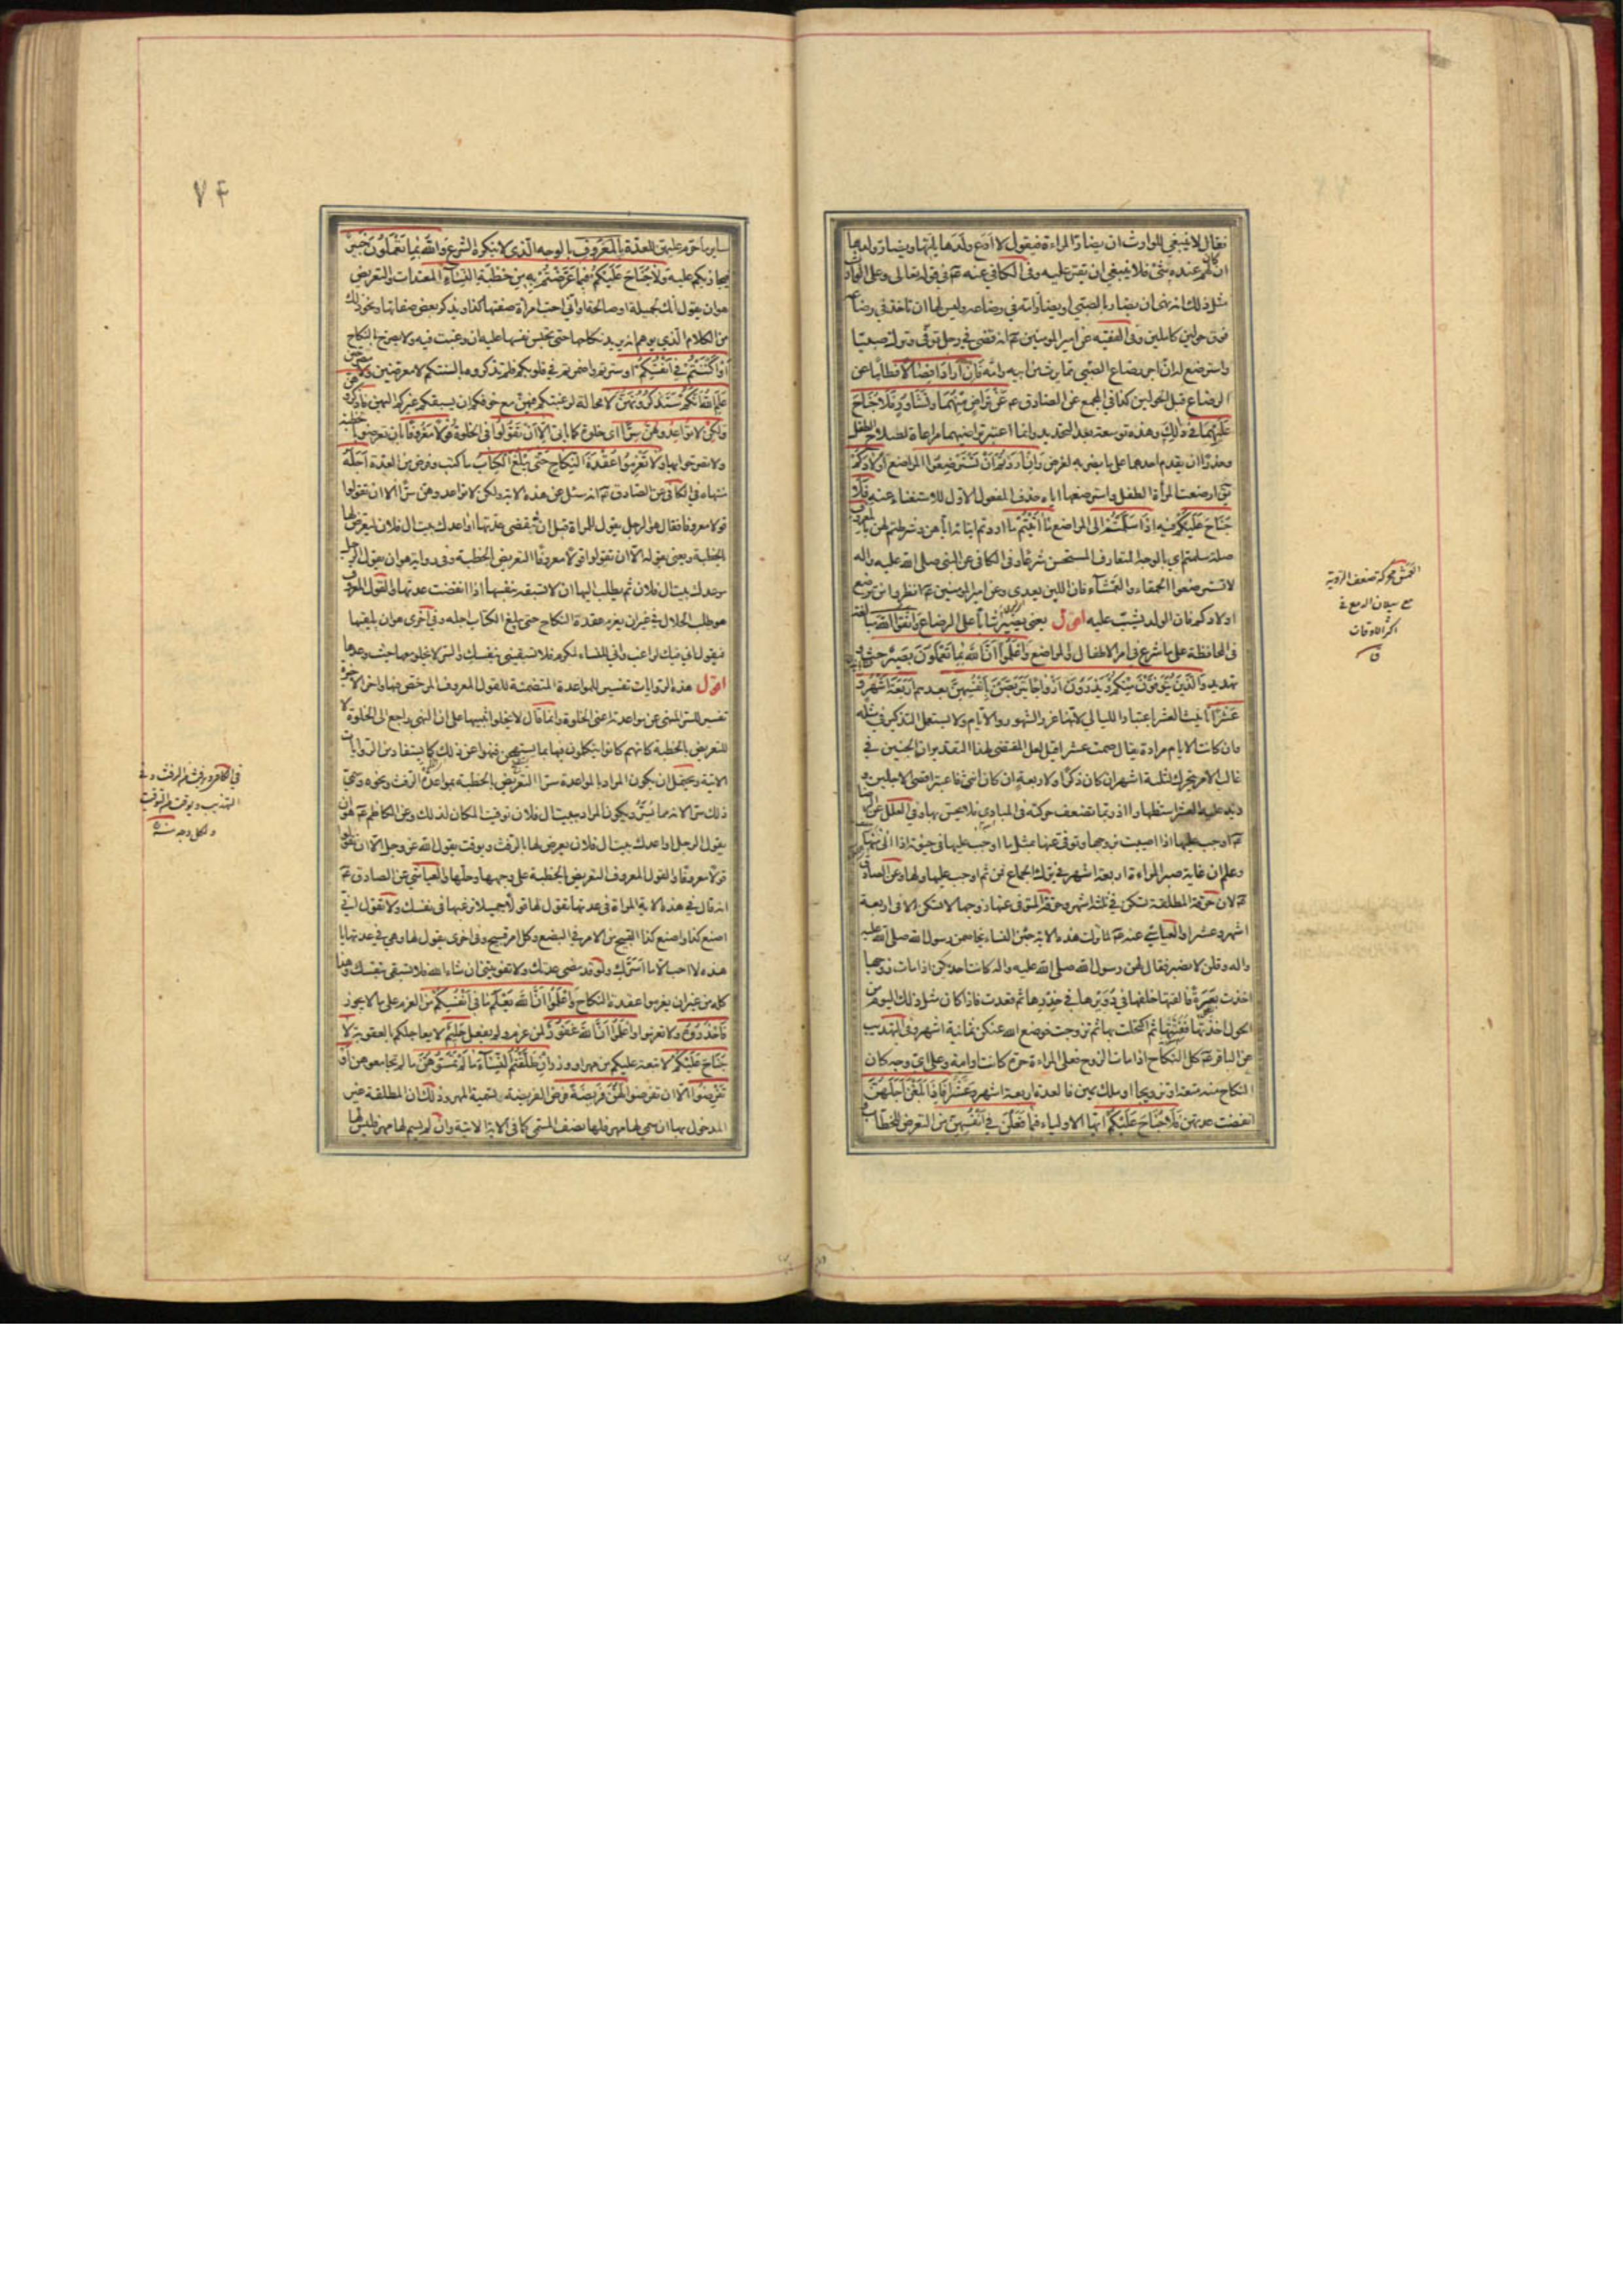 فقال لا ينبغي للوارث ان يضار المراءة فيقول لا ادع ولدها ياتيها ويضار ولدها
ان كان لهم عنده شئ فلا ينبغي ان يقتر عليه وفي الكافي عنه عم في قوله تعالى وعلى الوارث
مثل ذلك انه نهى ان يضار بالصبي او يضار امه في رضاعه وليس لها ان تاخذ في رضاعه
فوق حولين كاملين وفي الفقيه عن امير المومنين عم انه قضى في رجل توفى وترك صبيا
واسترضع له ان اجر رضاع الصبي مما يرث من ابيه وامه فَاِنْ اَرَادَا فِصَالًا فطاما عن
الرضاع قبل الحولين كذا في المجمع عن الصادق عم عَنْ تَرَاضٍ مِنْهُمَا وَتَشَاوُرٍ فَلَا جُنَاحَ
عَلَيْهِمَا في ذلك وهذه توسعة بعد التحديد وانما اعتبر تراضيهما مراعاة لصلاح الطفل
وحذرا ان يقدم احدهما على ما يضر به لغرض وَاِنْ اَرَدْتُمْ اَنْ تَسْتَرْضِعُوا المراضع اَوْلَادَكُمْ
يق ارضعت المراة الطفل واسترضعها اياه حذف المفعول الاول للاستغناء عنه فَلَا
جُنَاحَ عَلَيْكُمْ فيه اِذَا سَلَّمْتُمْ الى المراضع مَا اٰتَيْتُمْ ما اردتم ايتائه اياهن وشرطتم لهن بِالْمَعْرُوفِ
صلة سلمتم اي بالوجه المتعارف المستحسن شرعا وفي الكافي عن النبي صلى الله عليه واله
لا تسترضعوا الحمقاء والعمشاء فان اللبن يعدي وعن امير المومنين عم انظروا من ترضع
اولادكم فان الولد يشب عليه اقول يعني يصير شابا على الرضاع وَاتَّقُوا اللّٰهَ مبالغة
في المحافظة على ما شرع في امر الاطفال والمراضع وَاعْلَمُوا اَنَّ اللّٰهَ بِمَا تَعْمَلُونَ بَصِيرٌ حث و
تهديد وَالَّذِينَ يُتَوَفَّوْنَ مِنْكُمْ وَيَذَرُونَ اَزْوَاجًا يَتَرَبَّصْنَ بِاَنْفُسِهِنَّ بعدهم اَرْبَعَةَ اَشْهُرٍ وَ
عَشْرًا تانيث العشر باعتبار الليالي لانها غرر الشهور والايام ولا يستعمل التذكير في مثله
وان كانت الايام مرادة يقال صمت عشرا قيل لعل المقتضى لهذا التقدير ان الجنين في
غالب الامر يتحرك لثلثة اشهر ان كان ذكرا ولاربعة ان كان انثى فاعتبر اقصى الاجلين و
زيد عليه العشر استظهارا اذ ربما تضعف حركته في المبادي فلا يحس بها وفي العلل عن الرضا
عم اوجب عليها اذا اصيبت بزوجها وتوفى عنها بمثل ما اوجب عليها في حيوته اذا الى منها
وعلم ان غاية صبر المراءة اربعة اشهر في ترك الجماع فمن ثم اوجب عليها ولها وعن الصادق
عم لان حرقة المطلقة تسكن في ثلثة اشهر وحرقة المتوفى عنها زوجها لا تسكن الا في اربعة
اشهر وعشرا والعياشي عنه عم لما نزلت هذه الاية جئن النساء يخاصمن رسول الله صلى الله عليه
واله وقلن لا نصبر فقال لهن رسول الله صلى الله عليه واله كانت احديكن اذا مات زوجها
اخذت بعرة فالقتها خلفها في دويرها في خدرها ثم قعدت فاذا كان مثل ذلك اليوم من
الحول اخذتها ففتتها ثم اكتحلت بها ثم تزوجت فوضع الله عنكن ثمانية اشهر وفي التهذيب
عن الباقر عم كل النكاح اذا مات الزوج فعلى المراءة حرة كانت او امة وعلى اي وجه كان
النكاح منه متعة او تزويجا او ملك يمين فالعدة اربعة اشهر وعشرا فَاِذَا بَلَغْنَ اَجَلَهُنَّ
انقضت عدتهن فَلَا جُنَاحَ عَلَيْكُمْ ايها الاولياء فِيمَا فَعَلْنَ فِي اَنْفُسِهِنَّ من التعرض للخطاب و
العمش محركة ضعف الرؤية
مع سيلان الدمع في
اكثر الاوقات
ق
٧٤
ساير ما حرم عليهن للعدة بِالْمَعْرُوفِ بالوجه الذي لا ينكره الشرع وَاللّٰهُ بِمَا تَعْمَلُونَ خَبِيرٌ
فيجازيكم عليه وَلَا جُنَاحَ عَلَيْكُمْ فِيمَا عَرَّضْتُمْ بِهِ مِنْ خِطْبَةِ النِّسَاءِ المعتدات والتعريض
هو ان يقول انك لجميلة او صالحة او اني احب امراة صفتها كذا ويذكر بعض صفاتها ونحو ذلك
من الكلام الذي يوهم انه يريد نكاحها حتى تحبس نفسها عليه ان رغبت فيه ولا يصرح بالنكاح
اَوْ اَكْنَنْتُمْ فِي اَنْفُسِكُمْ او سترتم واضمرتم في قلوبكم فلم تذكروه بالسنتكم لا معرضين ولا مصرحين
عَلِمَ اللّٰهُ اَنَّكُمْ سَتَذْكُرُونَهُنَّ لا محالة لرغبتكم فيهن مع خوفكم ان يسبقكم غيركم اليهن فاذكروهن
وَلٰكِنْ لَا تُوَاعِدُوهُنَّ سِرًّا اي خلوة كما ياتي اِلَّا اَنْ تَقُولُوا في الخلوة قَوْلًا مَعْرُوفًا بان تعرضوا بالخطبة
ولا تصرحوا بها وَلَا تَعْزِمُوا عُقْدَةَ النِّكَاحِ حَتّٰى يَبْلُغَ الْكِتَابُ ما كتب وفرض من العدة اَجَلَهُ
منتهاه في الكافي عن الصادق عم انه سئل عن هذه الاية ولكن لا تواعدوهن سرا الا ان تقولوا
قولا معروفا فقال هو الرجل يقول للمراة قبل ان تنقضي عدتها اواعدك بيت ال فلان ليعرض لها
بالخطبة ويعني بقوله الا ان تقولوا قولا معروفا التعريض بالخطبة وفي رواية هو ان يقول الرجل
موعدك بيت ال فلان ثم يطلب اليها ان لا تسبقه بنفسها اذا انقضت عدتها والقول المعروف
هو طلب الحلال في غير ان يعزم عقدة النكاح حتى يبلغ الكتاب اجله وفي اخرى هو ان يلقيها
فيقول اني فيك لراغب واني للنساء لمكرم فلا تسبقيني بنفسك والسر لا يخلو معها حيث وعدها
اقول هذه الروايات تفسير للمواعدة المتضمنة للقول المعروف المرخص فيها واخر الاخيرة
تفسير للسر المنهي عن مواعدته اعني الخلوة وانما قال لا يخلو تنبيها على ان النهي راجع الى الخلوة لا
للتعريض بالخطبة كانهم كانوا يتكلمون فيها بما يستهجن فنهوا عن ذلك كما يستفاد من الروايات
الاتية ويحتمل ان يكون المراد بالمواعدة سرا التعريض بالخطبة بمواعدة الرفث ونحوه وسمي
ذلك سرا لانه مما يسر ويكون المراد ببيت ال فلان توقيت المكان لذلك وعن الكاظم عم هو ان
يقول الرجل اواعدك بيت ال فلان يعرض لها بالرفث ويوقت يقول الله عز وجل الا ان تقولوا
قولا معروفا والقول المعروف التعريض بالخطبة على وجهها وحلها والعياشي عن الصادق عم
انه قال في هذه الاية المراة في عدتها تقول لها قولا جميلا ترغبها في نفسك ولا تقول اني
اصنع كذا واصنع كذا القبيح من الامر في البضع وكل امر قبيح وفي اخرى يقول لها وهي في عدتها يا
هذه لا احب الا ما اسرك ولو قد مضى عدتك لا تفوتيني ان شاء الله فلا تسبقي بنفسك وهذا
كله من غير ان يعزموا عقدة النكاح وَاعْلَمُوا اَنَّ اللّٰهَ يَعْلَمُ مَا فِي اَنْفُسِكُمْ من العزم على ما لا يجوز
فَاحْذَرُوهُ ولا تعزموا وَاعْلَمُوا اَنَّ اللّٰهَ غَفُورٌ لمن عزم ولم يفعل حَلِيمٌ لا يعاجلكم بالعقوبة لَا
جُنَاحَ عَلَيْكُمْ لا تبعة عليكم من مهر او وزر اِنْ طَلَّقْتُمُ النِّسَاءَ مَا لَمْ تَمَسُّوهُنَّ ما لم تجامعوهن اَوْ
تَفْرِضُوا الا ان تفرضوا لَهُنَّ فَرِيضَةً فرض الفريضة تسمية المهر وذلك ان المطلقة غير
المدخول بها ان سمي لها مهر فلها نصف المسمى كما في الاية الاتية وان لم يسم لها مهر فليس لها
في الكافي يرفث من الرفث وفي
التهذيب ويوقت من التوقيت
ولكل وجه منه